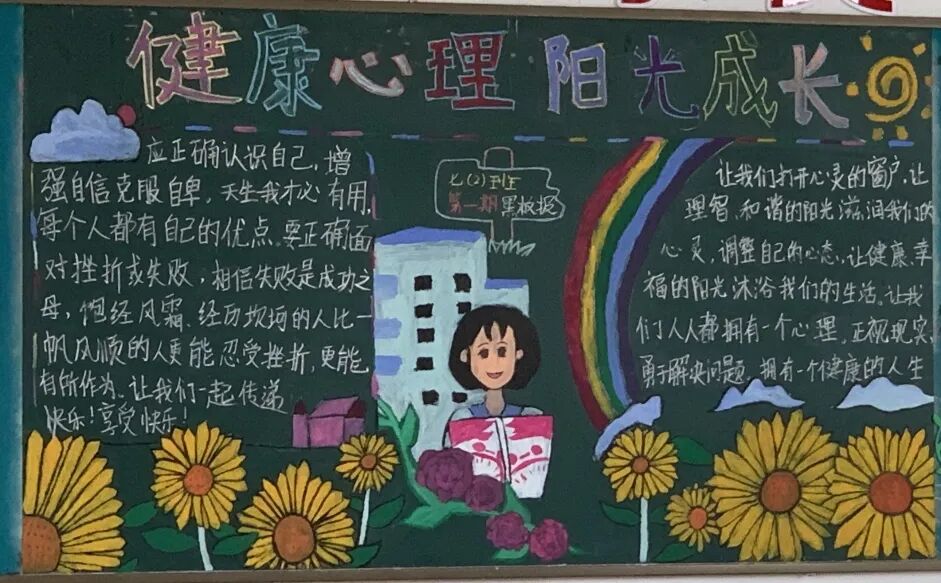 健康心理 阳光成长
应正确认识自己，增
强自信克服自卑，天生我才必有用，
每个人都有自己的优点。要正确面
对挫折或失败，相信失败是成功之
母，饱经风霜、经历坎坷的人比一
帆风顺的人更能忍受挫折，更能
有所作为。让我们一起传递
快乐！享受快乐！
七(2)班
第一期黑板报
让我们打开心灵的窗户，让
理智、和谐的阳光滋润我们的
心灵，调整自己的心态，让健康、幸
福的阳光沐浴我们的生活。让我
们人人都拥有一个心理。正视现实，
勇于解决问题。拥有一个健康的人生